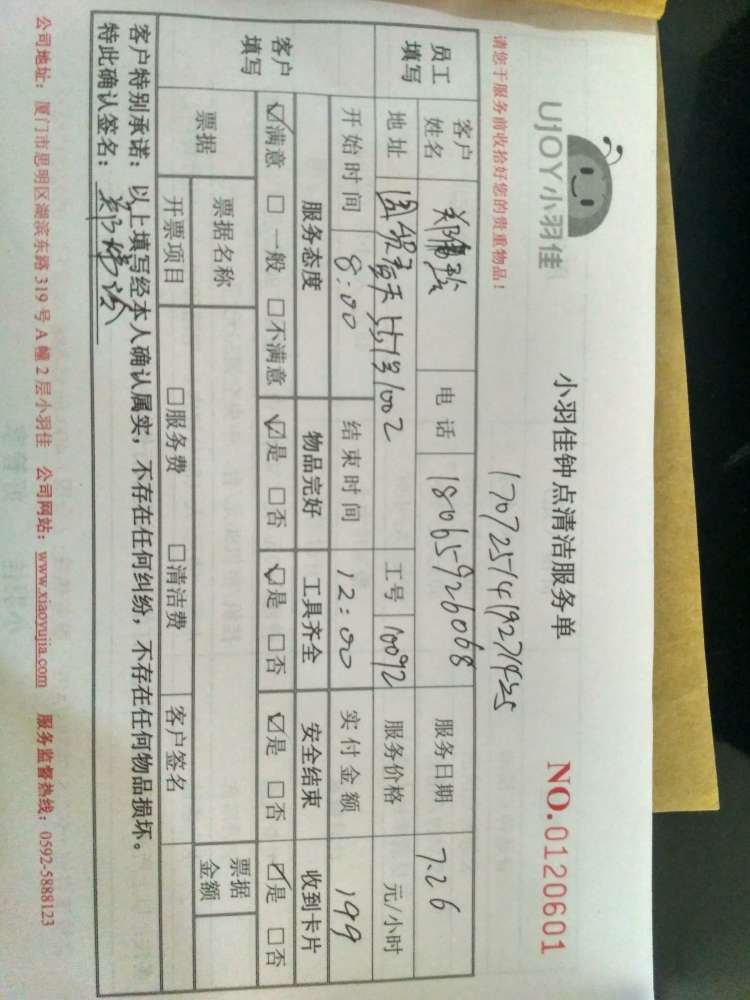 UJOY小羽佳
小羽佳钟点清洁服务单
NO.0120601
请您于服务前收拾好您的贵重物品!
员工填写 客户姓名 电话 18065926068 服务日期 7.26
地址 1002 工号 10092 服务价格 元/小时
客户填写 开始时间 8:00 结束时间 12:00 实付金额 199
服务态度 物品完好 工具齐全 安全结束 收到卡片
☑满意 □一般 □不满意 ☑是 □否 ☑是 □否 ☑是 □否 ☑是 □否
票据 票据名称 票据金额
开票项目 □服务费 □清洁费 客户签名
客户特别承诺:以上填写经本人确认属实,不存在任何纠纷,不存在任何物品损坏。
特此确认签名:
公司地址:厦门市思明区湖滨东路319号A幢2层小羽佳 公司网站:www.xiaoyujia.com 服务监督热线:0592-5888123